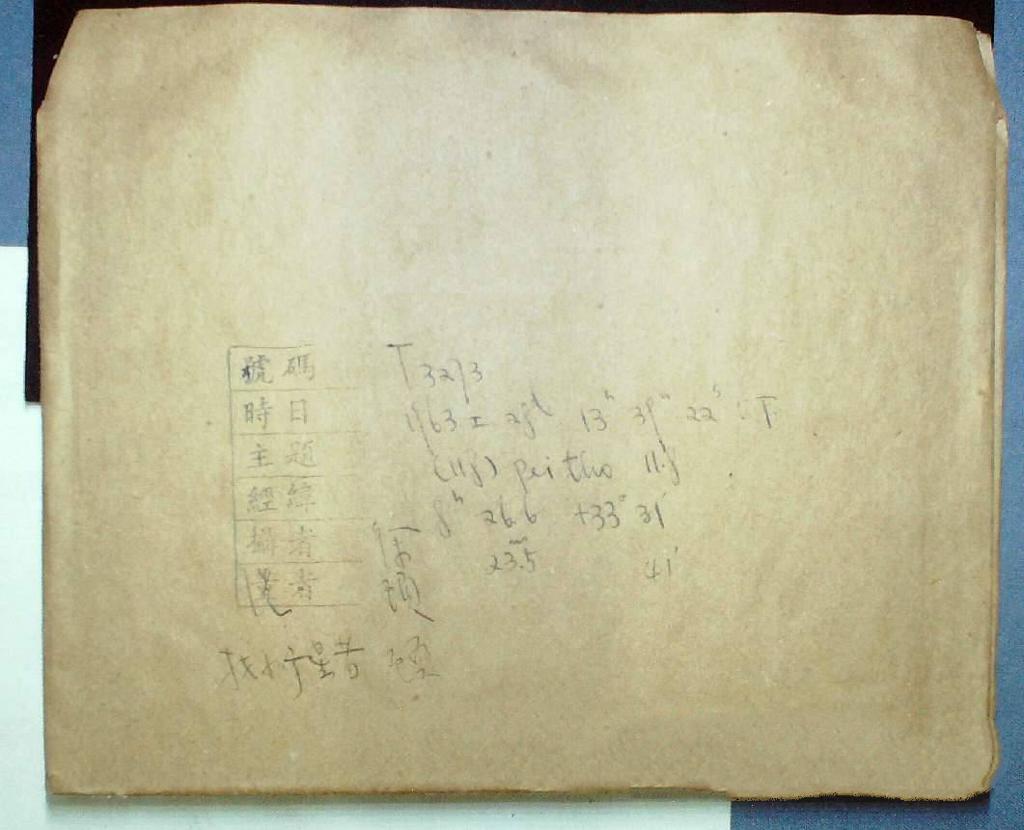 號碼 T3293
時日 1963 I 28d 13h 39m 22s : T
主題 (118) peitho 11.8
經緯 8h 26.6 +33° 31'
攝者 徐 23.5m 41'
者
找小行星者